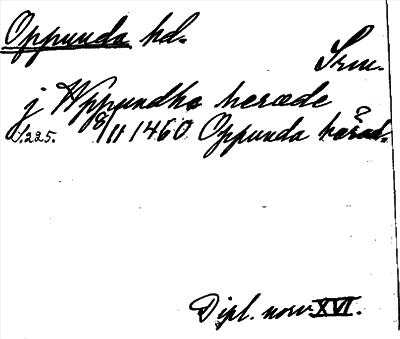 Oppunda hd.
Srm.
j Wppundha heræde
S. 225. 8/11 1460 Oppunda härad.
Dipl. norv. XVI.